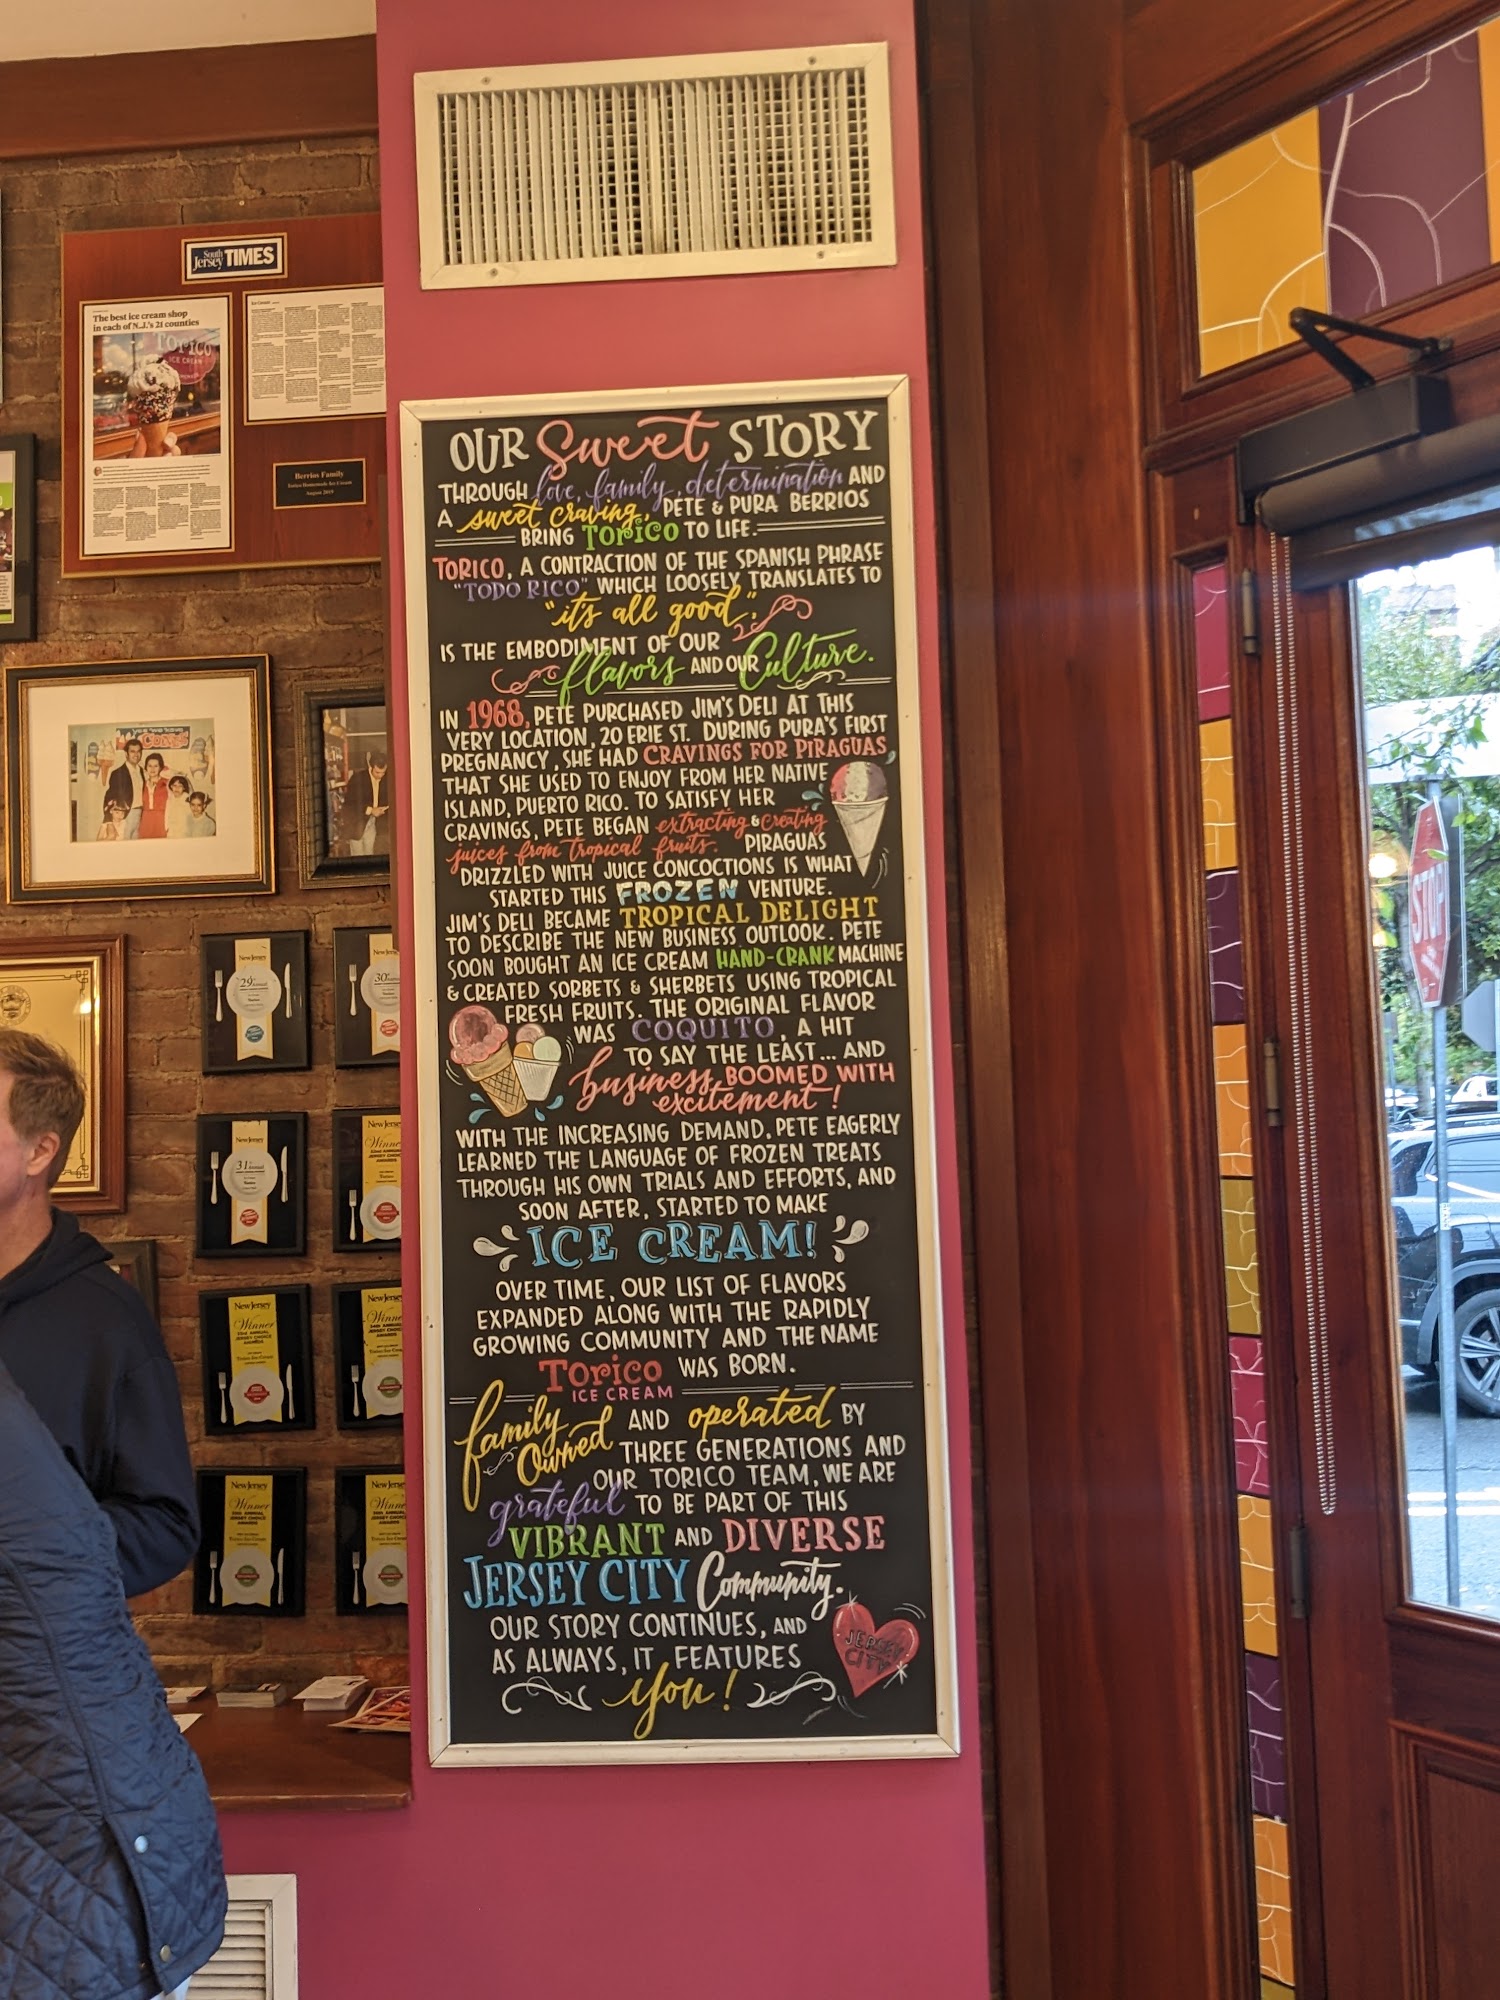 South Jersey TIMES
The best ice cream shop
in each of N.J.'s 21 counties
TORICO
ICE CREAM
Berrios Family
Torico Homemade Ice Cream
August 2019
OUR Sweet STORY
THROUGH love, family, determination AND
A sweet craving, PETE & PURA BERRIOS
BRING TORICO TO LIFE.
TORICO, A CONTRACTION OF THE SPANISH PHRASE
"TODO RICO" WHICH LOOSELY TRANSLATES TO
"it's all good",
IS THE EMBODIMENT OF OUR
flavors AND OUR Culture.
IN 1968, PETE PURCHASED JIM'S DELI AT THIS
VERY LOCATION, 20 ERIE ST. DURING PURA'S FIRST
PREGNANCY, SHE HAD CRAVINGS FOR PIRAGUAS
THAT SHE USED TO ENJOY FROM HER NATIVE
ISLAND, PUERTO RICO. TO SATISFY HER
CRAVINGS, PETE BEGAN extracting & creating
juices from tropical fruits. PIRAGUAS
DRIZZLED WITH JUICE CONCOCTIONS IS WHAT
STARTED THIS FROZEN VENTURE.
JIM'S DELI BECAME TROPICAL DELIGHT
TO DESCRIBE THE NEW BUSINESS OUTLOOK. PETE
SOON BOUGHT AN ICE CREAM HAND-CRANK MACHINE
& CREATED SORBETS & SHERBETS USING TROPICAL
FRESH FRUITS. THE ORIGINAL FLAVOR
WAS COQUITO, A HIT
TO SAY THE LEAST... AND
business BOOMED WITH
excitement!
WITH THE INCREASING DEMAND, PETE EAGERLY
LEARNED THE LANGUAGE OF FROZEN TREATS
THROUGH HIS OWN TRIALS AND EFFORTS, AND
SOON AFTER, STARTED TO MAKE
ICE CREAM!
OVER TIME, OUR LIST OF FLAVORS
EXPANDED ALONG WITH THE RAPIDLY
GROWING COMMUNITY AND THE NAME
TORICO WAS BORN.
ICE CREAM
family Owned AND operated BY
THREE GENERATIONS AND
OUR TORICO TEAM, WE ARE
grateful TO BE PART OF THIS
VIBRANT AND DIVERSE
JERSEY CITY Community.
OUR STORY CONTINUES, AND
AS ALWAYS, IT FEATURES
you!
JERSEY
CITY
29th Annual
30th
New Jersey
31st Annual
Winner
New Jersey
Winner
New Jersey
Winner
New Jersey
Winner
STOP